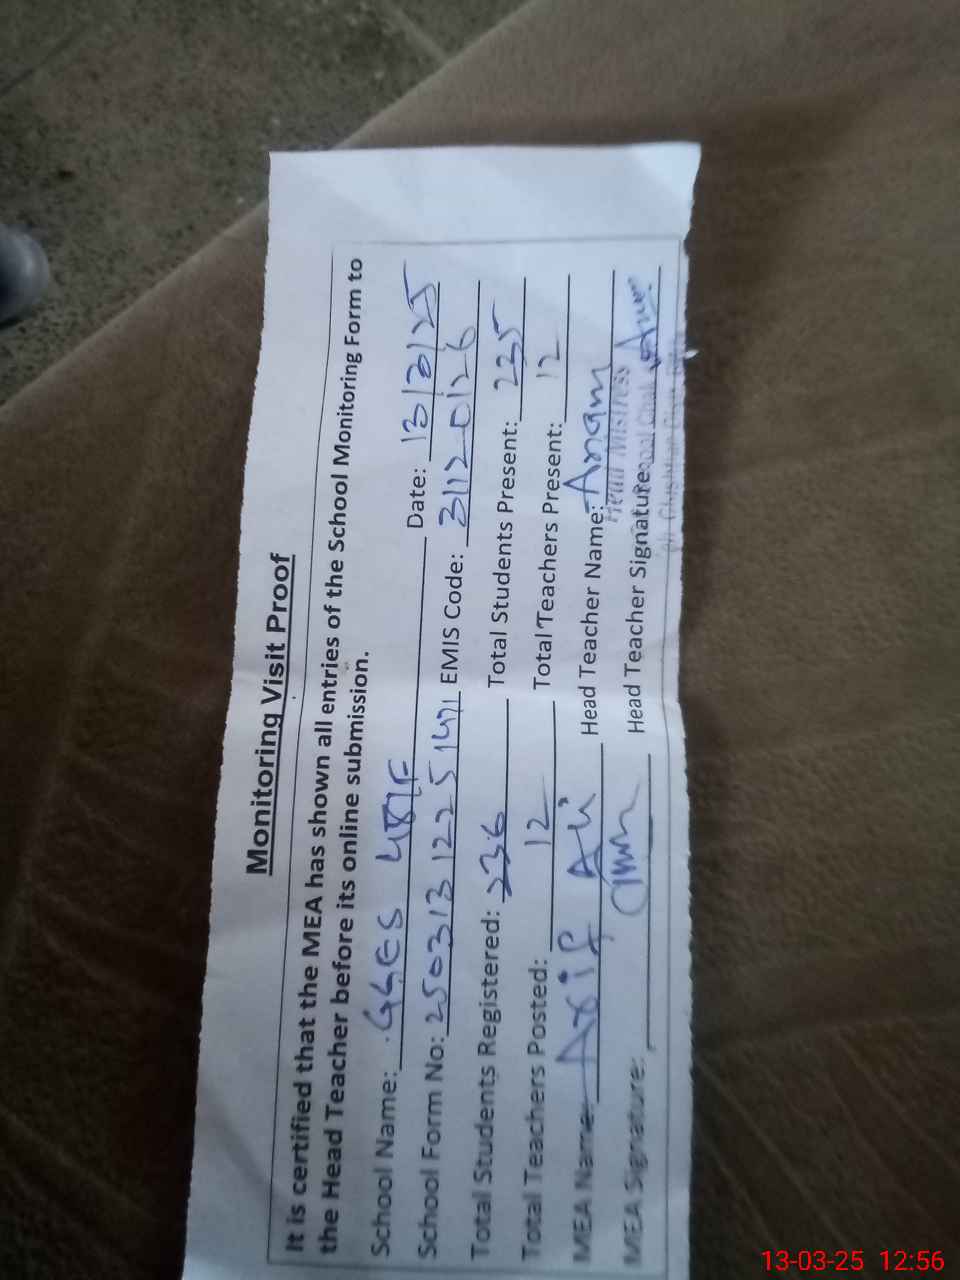 Monitoring Visit Proof
It is certified that the MEA has shown all entries of the School Monitoring Form to
the Head Teacher before its online submission.
School Name: GGES 48/F Date: 13/3/25
School Form No: 25031312251471 EMIS Code: 31120126
Total Students Registered: 236 Total Students Present: 235
Total Teachers Posted: 12 Total Teachers Present: 12
MEA Name: Asif Ali Head Teacher Name: Anam
Head Mistress
MEA Signature: Head Teacher Signature:
13-03-25 12:56